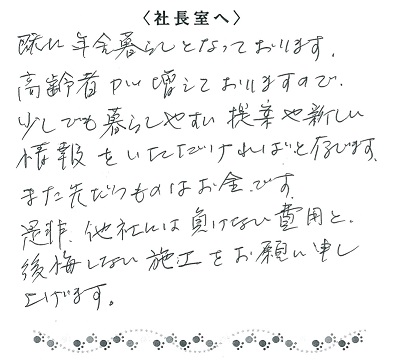 〈社長室へ〉
既に年金暮らしとなっております。
高齢者が増えておりますので、
少しでも暮らしやすい提案や新しい
情報をいただければと存じます。
また先だつものはお金です。
是非、他社には負けない費用と、
後悔しない施工をお願い申し
上げます。